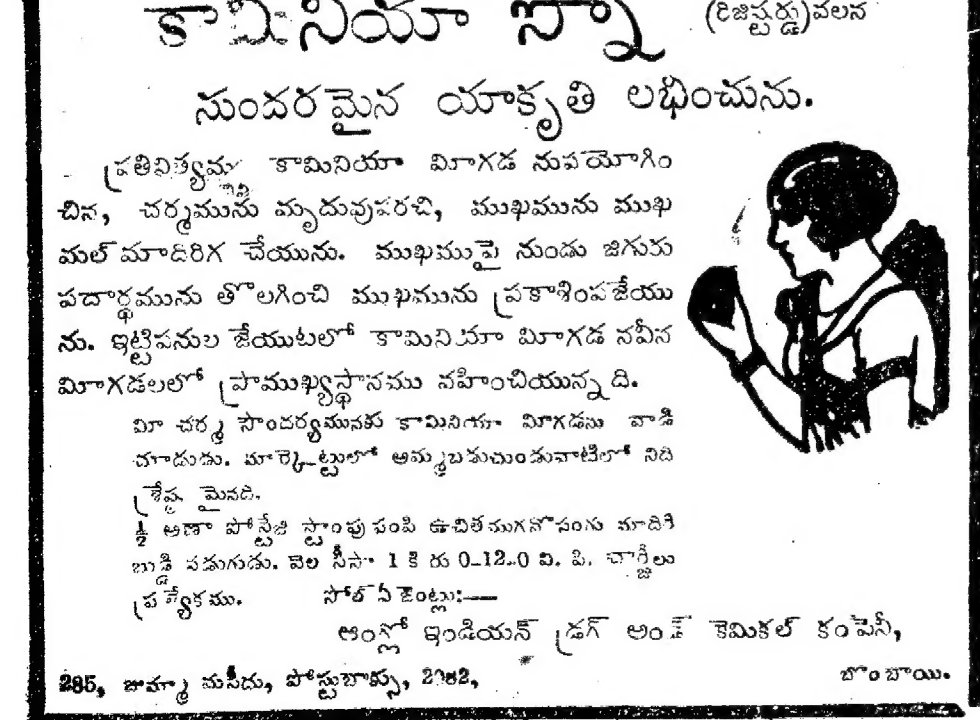 కామినియా స్నో (రిజిస్టర్డు) వలన
సుందరమైన యాకృతి లభించును.
ప్రతినిత్యమ్ము కామినియా మీగడ నుపయోగిం
చిన, చర్మమును మృదువుపరచి, ముఖమును ముఖ
మల్ మాదిరిగ చేయును. ముఖముపై నుండు జిగురు
పదార్థమును తొలగించి ముఖమును ప్రకాశింపజేయు
ను. ఇట్టిపనుల జేయుటలో కామినియా మీగడ నవీన
మీగడలలో ప్రాముఖ్యస్థానము వహించియున్నది.
మీ చర్మ సౌందర్యమునకు కామినియా మీగడను వాడి
చూడుడు. మార్కెట్టులో అమ్మబడుచుండువాటిలో నిది
శ్రేష్ఠ మైనది.
½ అణా పోస్టేజి స్టాంపు పంపి ఉచితముగనొసంగు మాదిరి
బుడ్డి నడుగుడు. వెల సీసా 1 కి రు 0-12-0 వి. పి. చార్జీలు
ప్రత్యేకము. సోల్ ఏజెంట్లు:—
ఆంగ్లో ఇండియన్ డ్రగ్ అండ్ కెమికల్ కంపెనీ,
285, జుమ్మా మసీదు, పోస్టుబాక్సు, 2082, బొంబాయి.